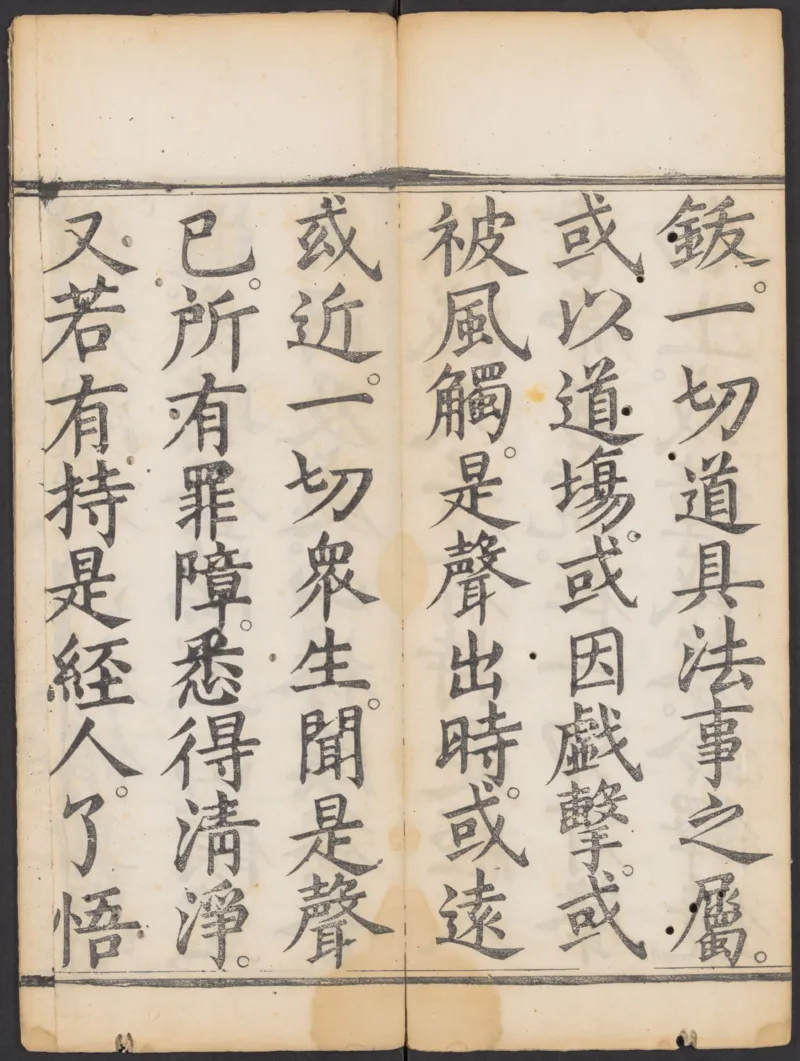 鈸。一切道具法事之屬。
或以道塲。或因戲擊。或
被風觸。是聲出時。或遠
或近。一切衆生。聞是聲
已。所有罪障。悉得清淨。
又若有持是經人。了悟